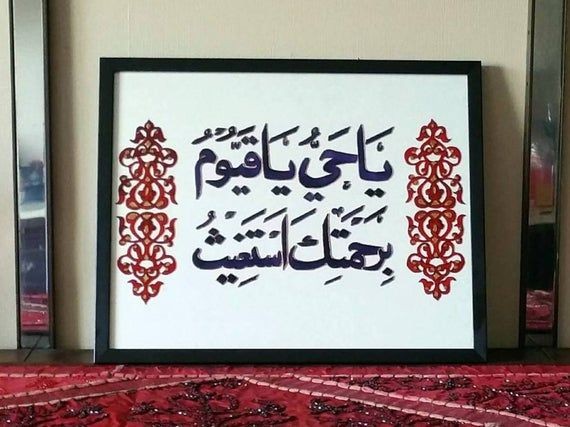 يَا حَيُّ يَا قَيُّوْمُ
بِرَحْمَتِكَ اَسْتَغِيْثُ